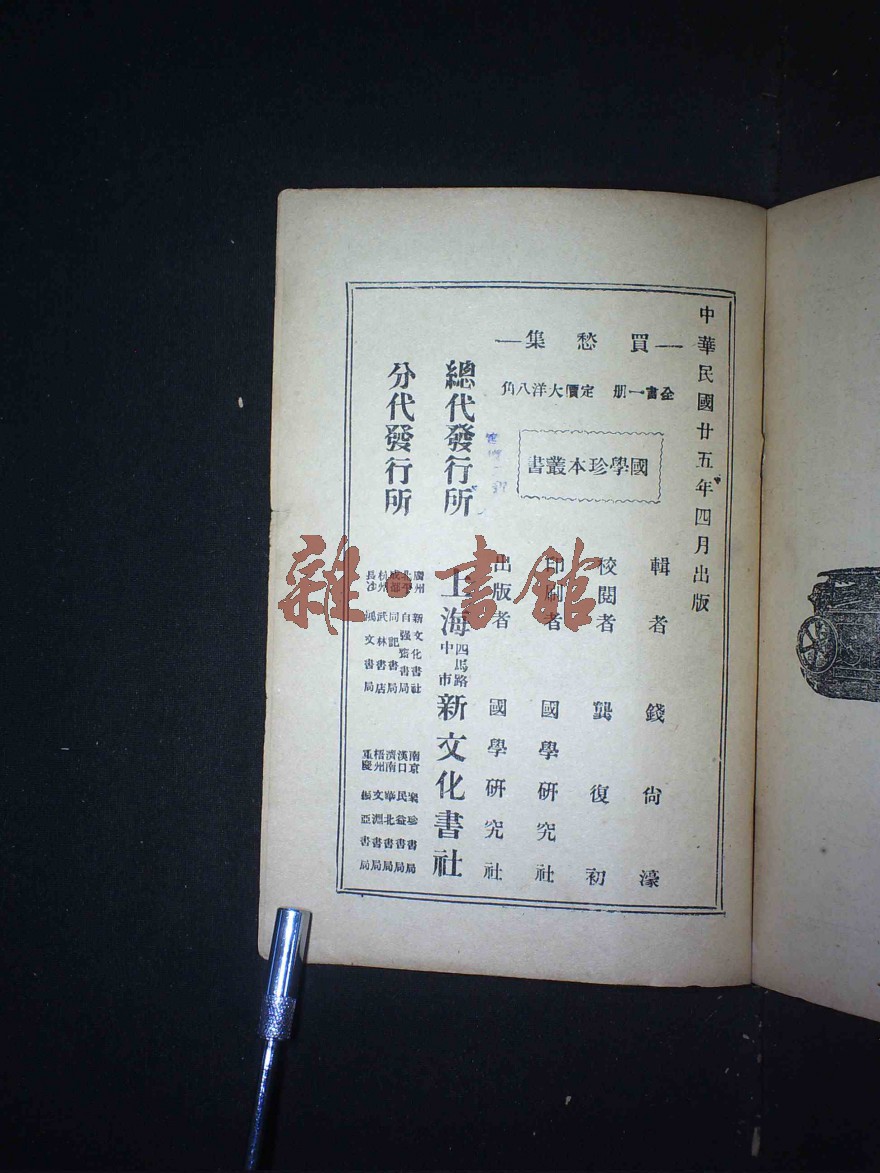 中華民國廿五年四月出版
—買愁集—
全書一册 定價大洋八角
國學珍本叢書
輯者 錢尙濠
校閱者 龔復初
印刷者 國學研究社
出版者 國學研究社
總代發行所 上海四馬路中市 新文化書社
分代發行所
廣州 新文化書社
北平 自强書局
成都 同記書局
杭州 武林書店
長沙 風文書局
南京
漢口
濟南
梧州 文淵書局
重慶 振亞書局
雜·書館